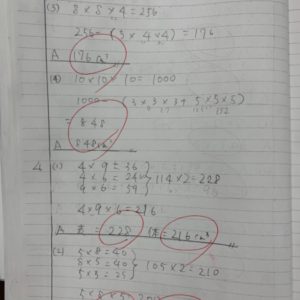 (3) 8×8×4=256
256-(3×4×4)=176
A 176cm³
(4) 10×10×10=1000
1000-(3×3×3+5×5×5)
152
=848
A 848cm³
4 (1) 4×9=36
4×6=24
9×6=54
114×2=228
4×9×6=216
A 表=228 体=216cm³
(2) 5×8=40
5×8=40
5×5=25
105×2=210